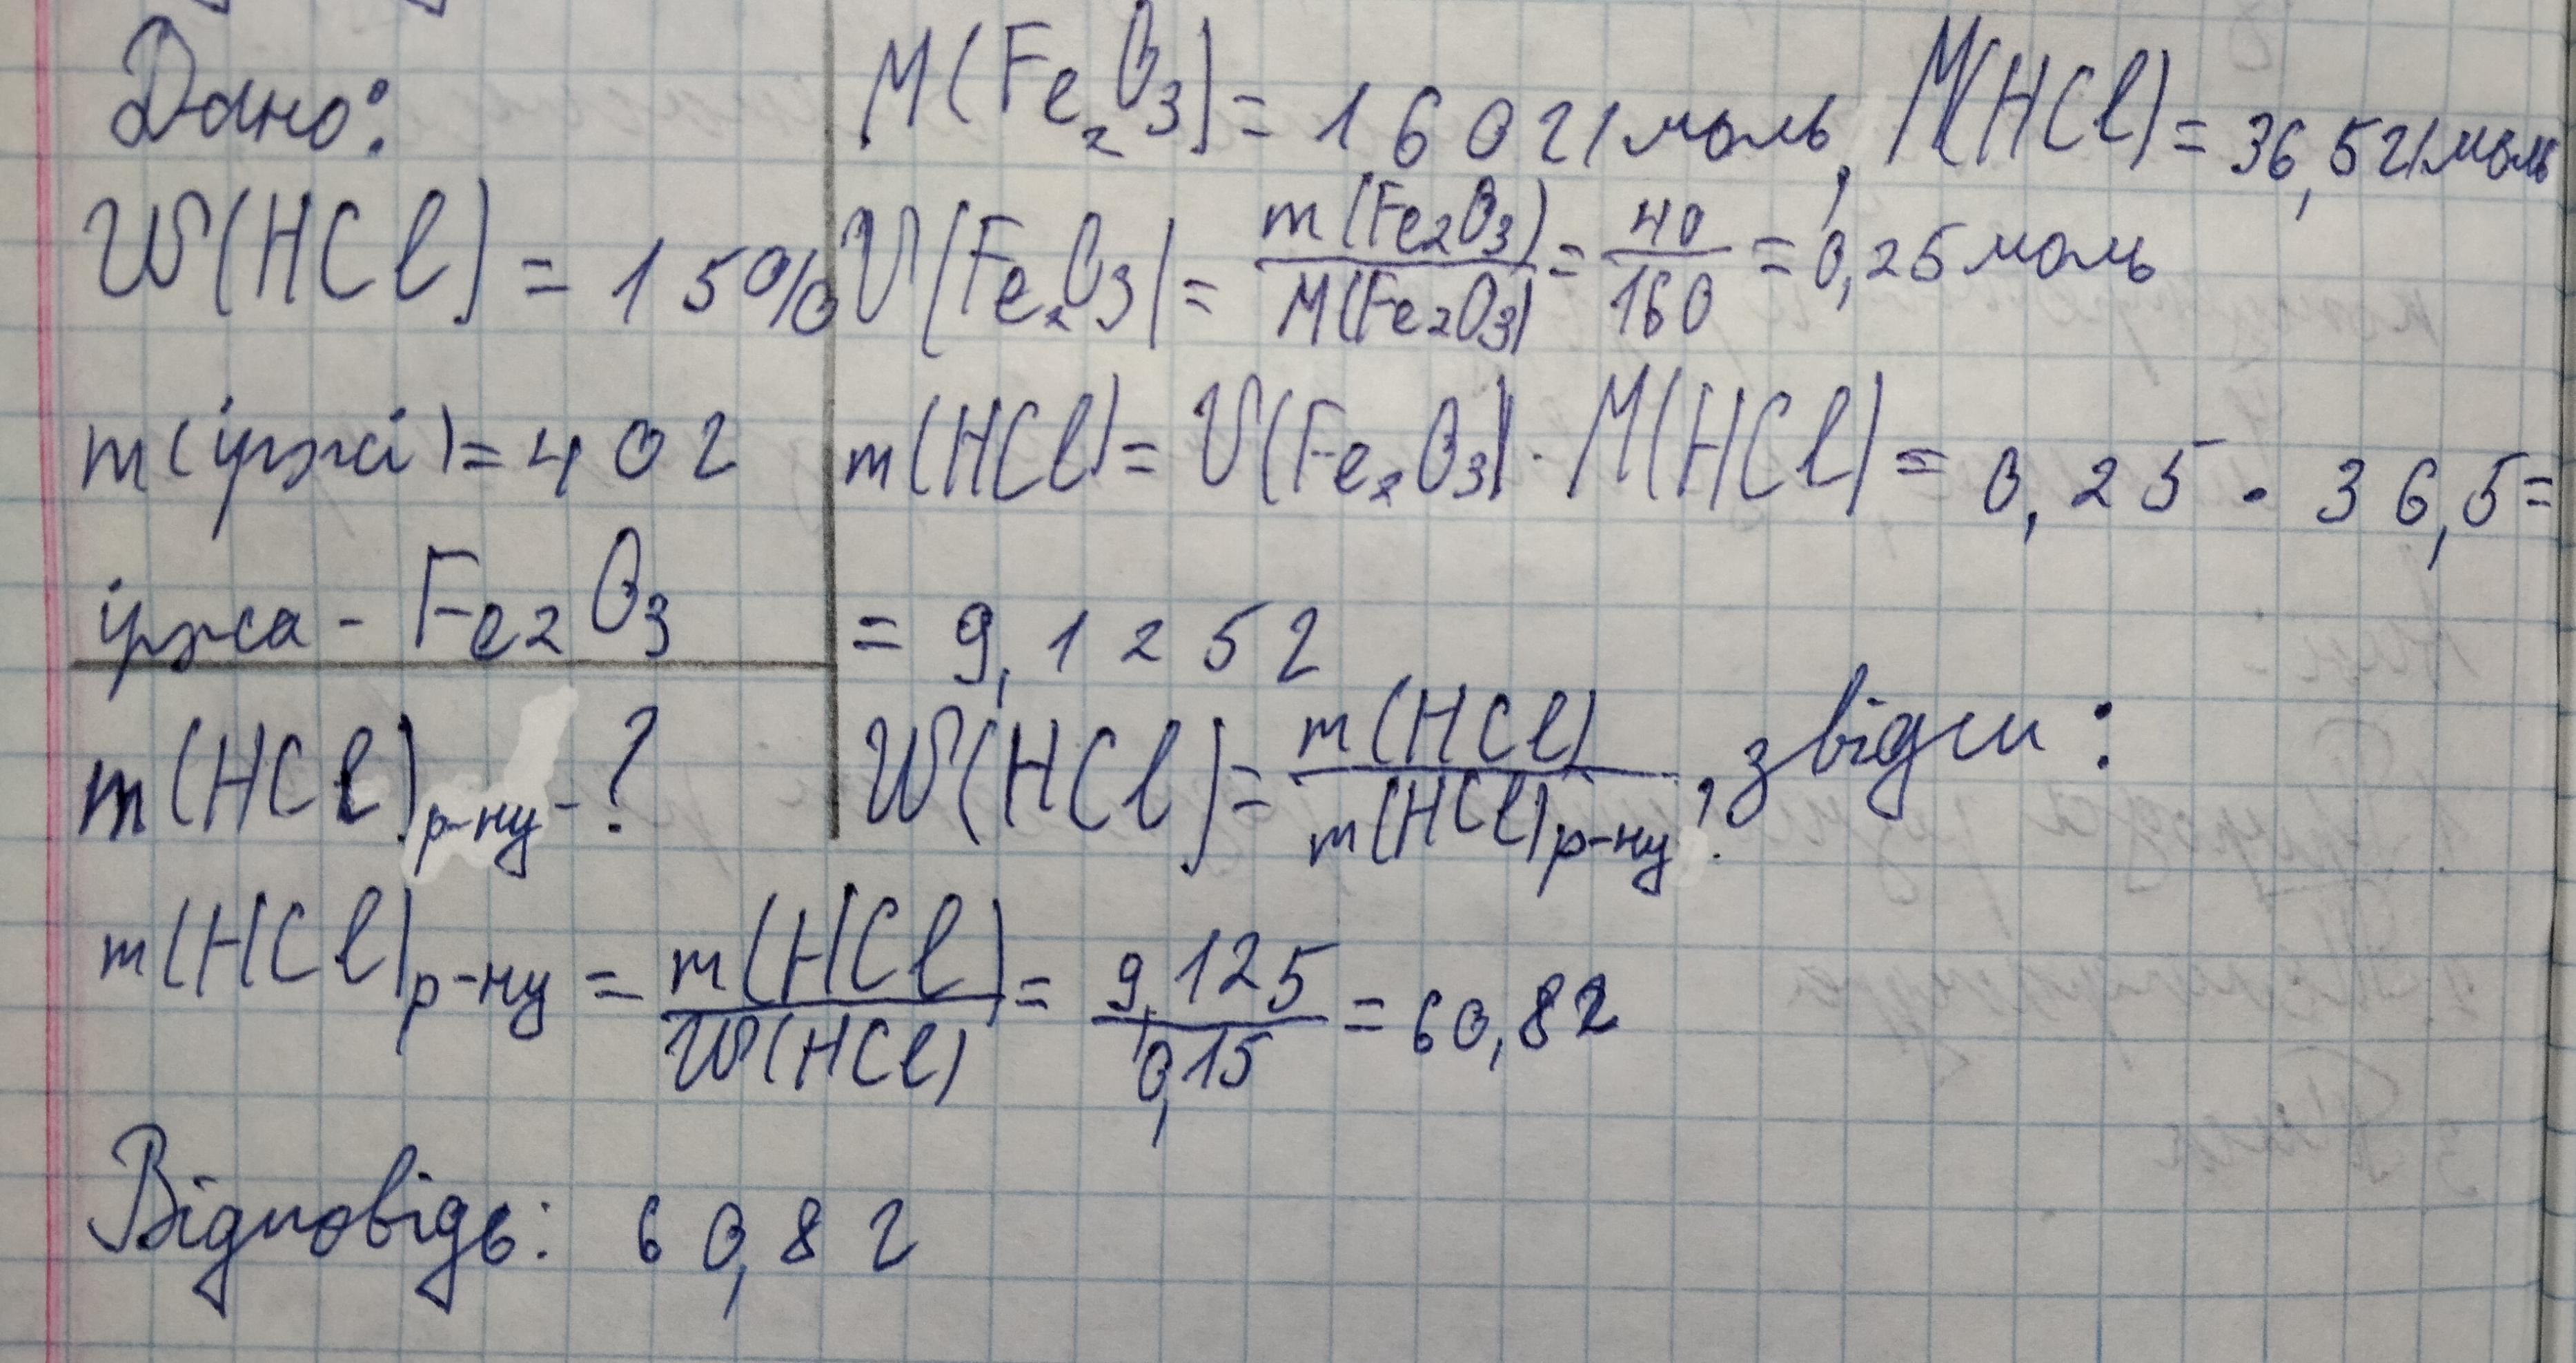 Дано:
W(HCl) = 15%
m(іржі) = 40 г
іржа - Fe2O3
m(HCl)р-ну - ?
M(Fe2O3) = 160 г/моль, M(HCl) = 36,5 г/моль
V(Fe2O3) = m(Fe2O3)/M(Fe2O3) = 40/160 = 0,25 моль
m(HCl) = V(Fe2O3) · M(HCl) = 0,25 · 36,5 =
= 9,125 г
W(HCl) = m(HCl)/m(HCl)р-ну, звідси:
m(HCl)р-ну = m(HCl)/W(HCl) = 9,125/0,15 = 60,8 г
Відповідь: 60,8 г